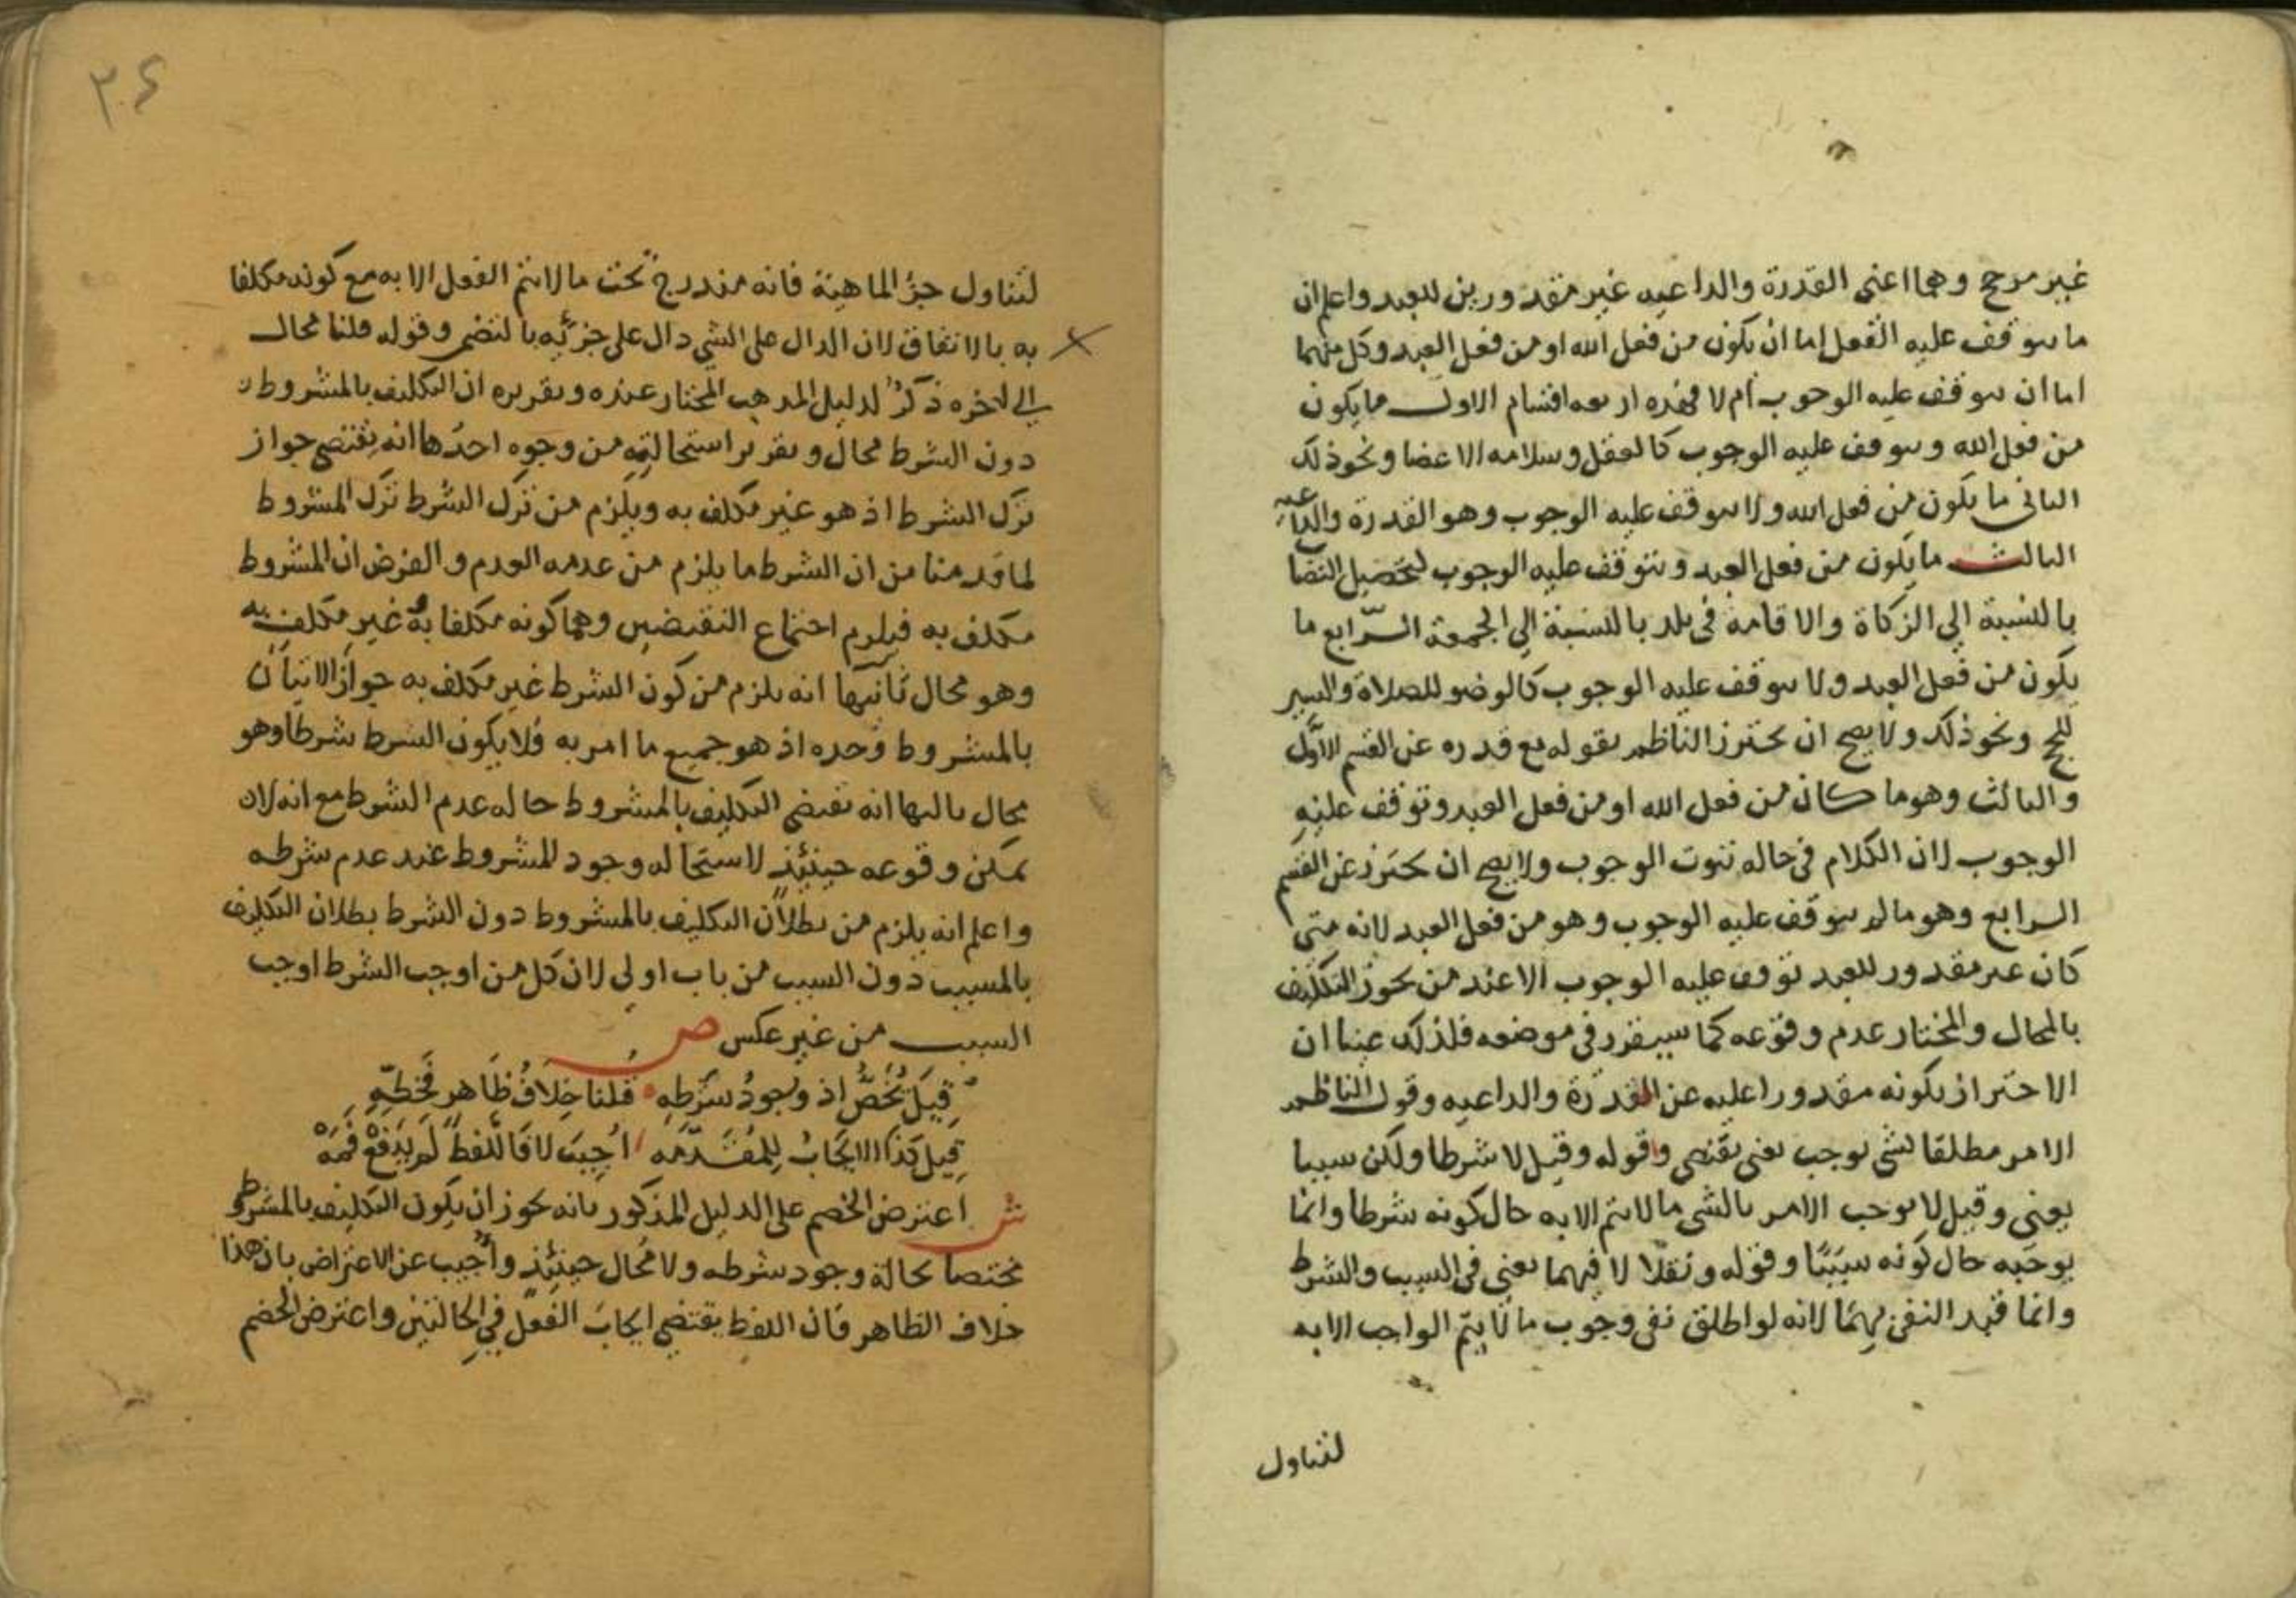 غير مرجح وهما اعني القدرة والداعيه غير مقدورين للعبد واعلم ان
ما يتوقف عليه الفعل اما ان يكون من فعل الله او من فعل العبد وكل منهما
اما ان يتوقف عليه الوجوب ام لا فهذه اربعه اقسام الاول ما يكون
من فعل الله ويتوقف عليه الوجوب كالعقل وسلامه الاعضا ونحو ذلك
الثاني ما يكون من فعل الله ولا يتوقف عليه الوجوب وهو القدرة والداعيه
الثالث ما يكون من فعل العبد ويتوقف عليه الوجوب لتحصيل النصاب
بالنسبة الي الزكاة والاقامة في بلد بالنسبة الي الجمعة الرابع ما
يكون من فعل العبد ولا يتوقف عليه الوجوب كالوضو للصلاة والسير
للحج ونحو ذلك ولا يصح ان يحترز الناظم بقوله مع قدره عن القسم الاول
والثالث وهو ما كان من فعل الله او من فعل العبد وتوقف عليه
الوجوب لان الكلام في حاله ثبوت الوجوب ولا يصح ان يحترز عن القسم
الرابع وهو ما لم يتوقف عليه الوجوب وهو من فعل العبد لانه متي
كان غير مقدور للعبد توقف عليه الوجوب الا عند من يجوز التكليف
بالمحال والمختار عدم وقوعه كما سيقرر في موضعه فلذلك عينا ان
الاحتراز بكونه مقدورا عليه عن القدرة والداعيه وقول الناظم
الامر مطلقا لشي يوجب يعني يقتضي وقوله وقيل لا شرطا ولكن سببا
يعني وقيل لا يوجب الامر بالشي ما لا يتم الا به حال كونه شرطا وانما
يوجبه حال كونه سببا وقوله ونقلا لا فيهما يعني في السبب والشرط
وانما قيد النفي بهما لانه لو اطلق نفي وجوب ما لا يتم الواجب الا به
لتناول
٢٤
لتناول جزء الماهية فانه مندرج تحت ما لا يتم الفعل الا به مع كونه مكلفا
به بالاتفاق لان الدال على الشي دال على جزئه بالتضمن وقوله قلنا محال
الي اخره ذكر لدليل المذهب المختار عنده وتقريره ان التكليف بالمشروط
دون الشرط محال وتقرير استحالته من وجوه احدها انه يقتضي جواز
ترك الشرط اذ هو غير مكلف به ويلزم من ترك الشرط ترك المشروط
لما قدمنا من ان الشرط ما يلزم من عدمه العدم والفرض ان المشروط
مكلف به فيلزم اجتماع النقيضين وهما كونه مكلفا به غير مكلف به
وهو محال ثانيها انه يلزم من كون الشرط غير مكلف به جواز الاتيان
بالمشروط وحده اذ هو جميع ما امر به فلا يكون الشرط شرطا وهو
محال ثالثها انه يقتضي التكليف بالمشروط حاله عدم الشرط مع انه لا
يمكن وقوعه حينئذ لاستحاله وجود المشروط عند عدم شرطه
واعلم انه يلزم من بطلان التكليف بالمشروط دون الشرط بطلان التكليف
بالمسبب دون السبب من باب اولي لان كل من اوجب الشرط اوجب
السبب من غير عكس ص
قيل يخص اذ وجود شرطه قلنا خلاف ظاهر فخطه
قيل كذا الايجاب للمقدمه اجيب لا فاللفظ لم يدفع فمه
ش اعترض الخصم على الدليل المذكور بانه يجوز ان يكون التكليف بالمشروط
مختصا بحالة وجود شرطه ولا محال حينئذ وأجيب عن الاعتراض بان هذا
خلاف الظاهر فان اللفظ يقتضي ايجاب الفعل في الحالتين واعترض الخصم